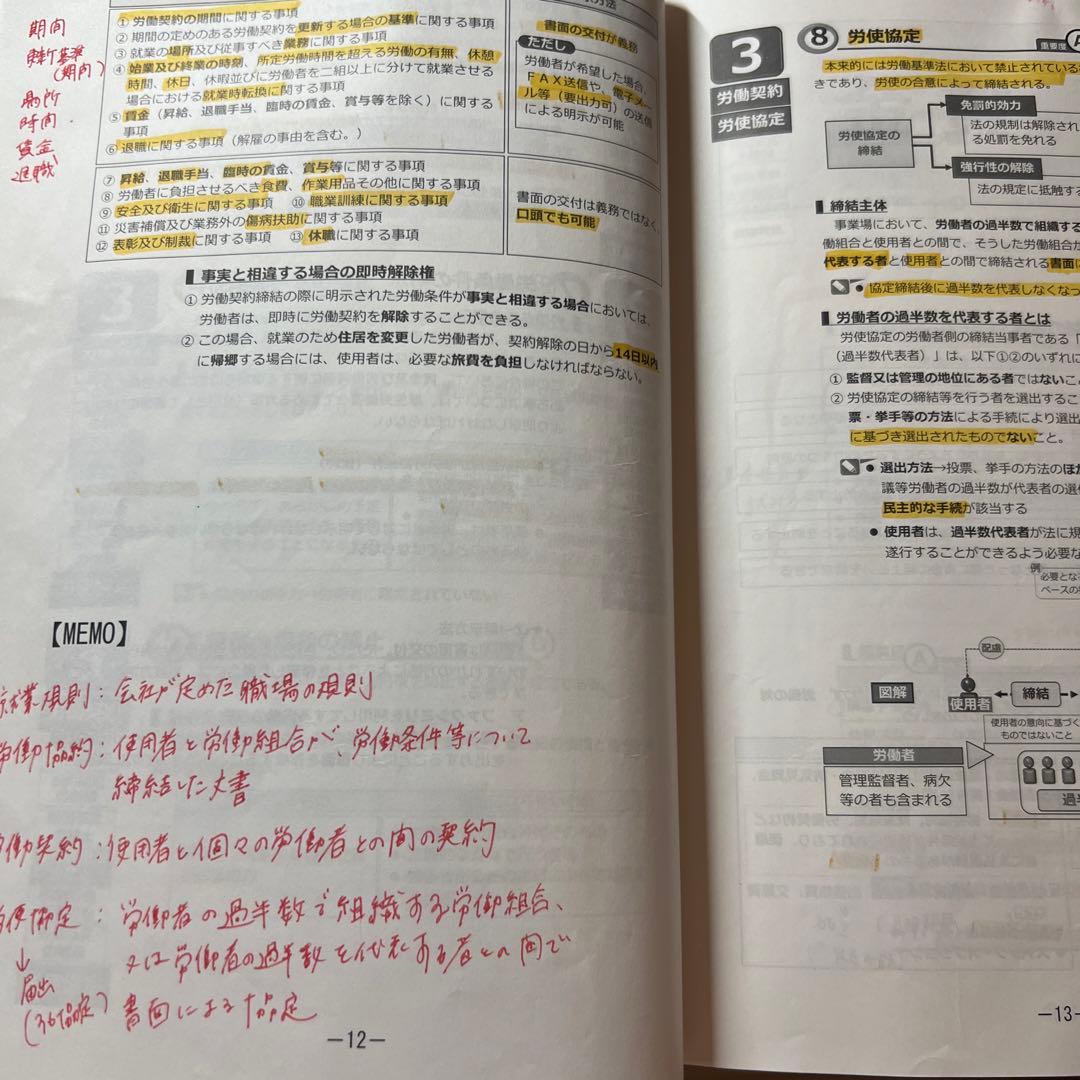 期間
更新基準
(期間)
場所
時間
賃金
退職
① 労働契約の期間に関する事項
② 期間の定めのある労働契約を更新する場合の基準に関する事項
③ 就業の場所及び従事すべき業務に関する事項
④ 始業及び終業の時刻、所定労働時間を超える労働の有無、休憩
時間、休日、休暇並びに労働者を二組以上に分けて就業させる
場合における就業時転換に関する事項
⑤ 賃金（昇給、退職手当、臨時の賃金、賞与等を除く）に関する
事項
⑥ 退職に関する事項（解雇の事由を含む。）
書面の交付が義務
ただし
労働者が希望した場合、
ＦＡＸ送信や、電子メー
ル等（要出力可）の送信
による明示が可能
⑦ 昇給、退職手当、臨時の賃金、賞与等に関する事項
⑧ 労働者に負担させるべき食費、作業用品その他に関する事項
⑨ 安全及び衛生に関する事項 ⑩ 職業訓練に関する事項
⑪ 災害補償及び業務外の傷病扶助に関する事項
⑫ 表彰及び制裁に関する事項 ⑬ 休職に関する事項
書面の交付は義務ではなく、
口頭でも可能
事実と相違する場合の即時解除権
① 労働契約締結の際に明示された労働条件が事実と相違する場合においては、
労働者は、即時に労働契約を解除することができる。
② この場合、就業のため住居を変更した労働者が、契約解除の日から14日以内
に帰郷する場合には、使用者は、必要な旅費を負担しなければならない。
【MEMO】
就業規則：会社が定めた職場の規則
労働協約：使用者と労働組合が、労働条件等について
締結した文書
労働契約：使用者と個々の労働者との間の契約
労使協定：労働者の過半数で組織する労働組合、
又は労働者の過半数を代表する者との間で
書面による協定
↓
届出
(36協定)
－12－
3
労働契約
労使協定
⑧ 労使協定
重要度 A
本来的には労働基準法において禁止されている
きであり、労使の合意によって締結される。
労使協定の
締結
免罰的効力
法の規制は解除され
る処罰を免れる
強行性の解除
法の規定に抵触す
締結主体
事業場において、労働者の過半数で組織す
働組合と使用者との間で、そうした労働組合が
代表する者と使用者との間で締結される書面に
● 協定締結後に過半数を代表しなくなっ
労働者の過半数を代表する者とは
労使協定の労働者側の締結当事者である「
（過半数代表者）」は、以下①②のいずれに
① 監督又は管理の地位にある者ではないこ
② 労使協定の締結等を行う者を選出するこ
票・挙手等の方法による手続により選出
に基づき選出されたものでないこと。
● 選出方法→投票、挙手の方法のほか
議等労働者の過半数が代表者の選任
民主的な手続が該当する
● 使用者は、過半数代表者が法に規
遂行することができるよう必要な
例
必要とな
ペースの
配慮
図解
使用者
締結
使用者の意向に基づく
ものではないこと
労働者
管理監督者、病欠
等の者も含まれる
過半
－13－